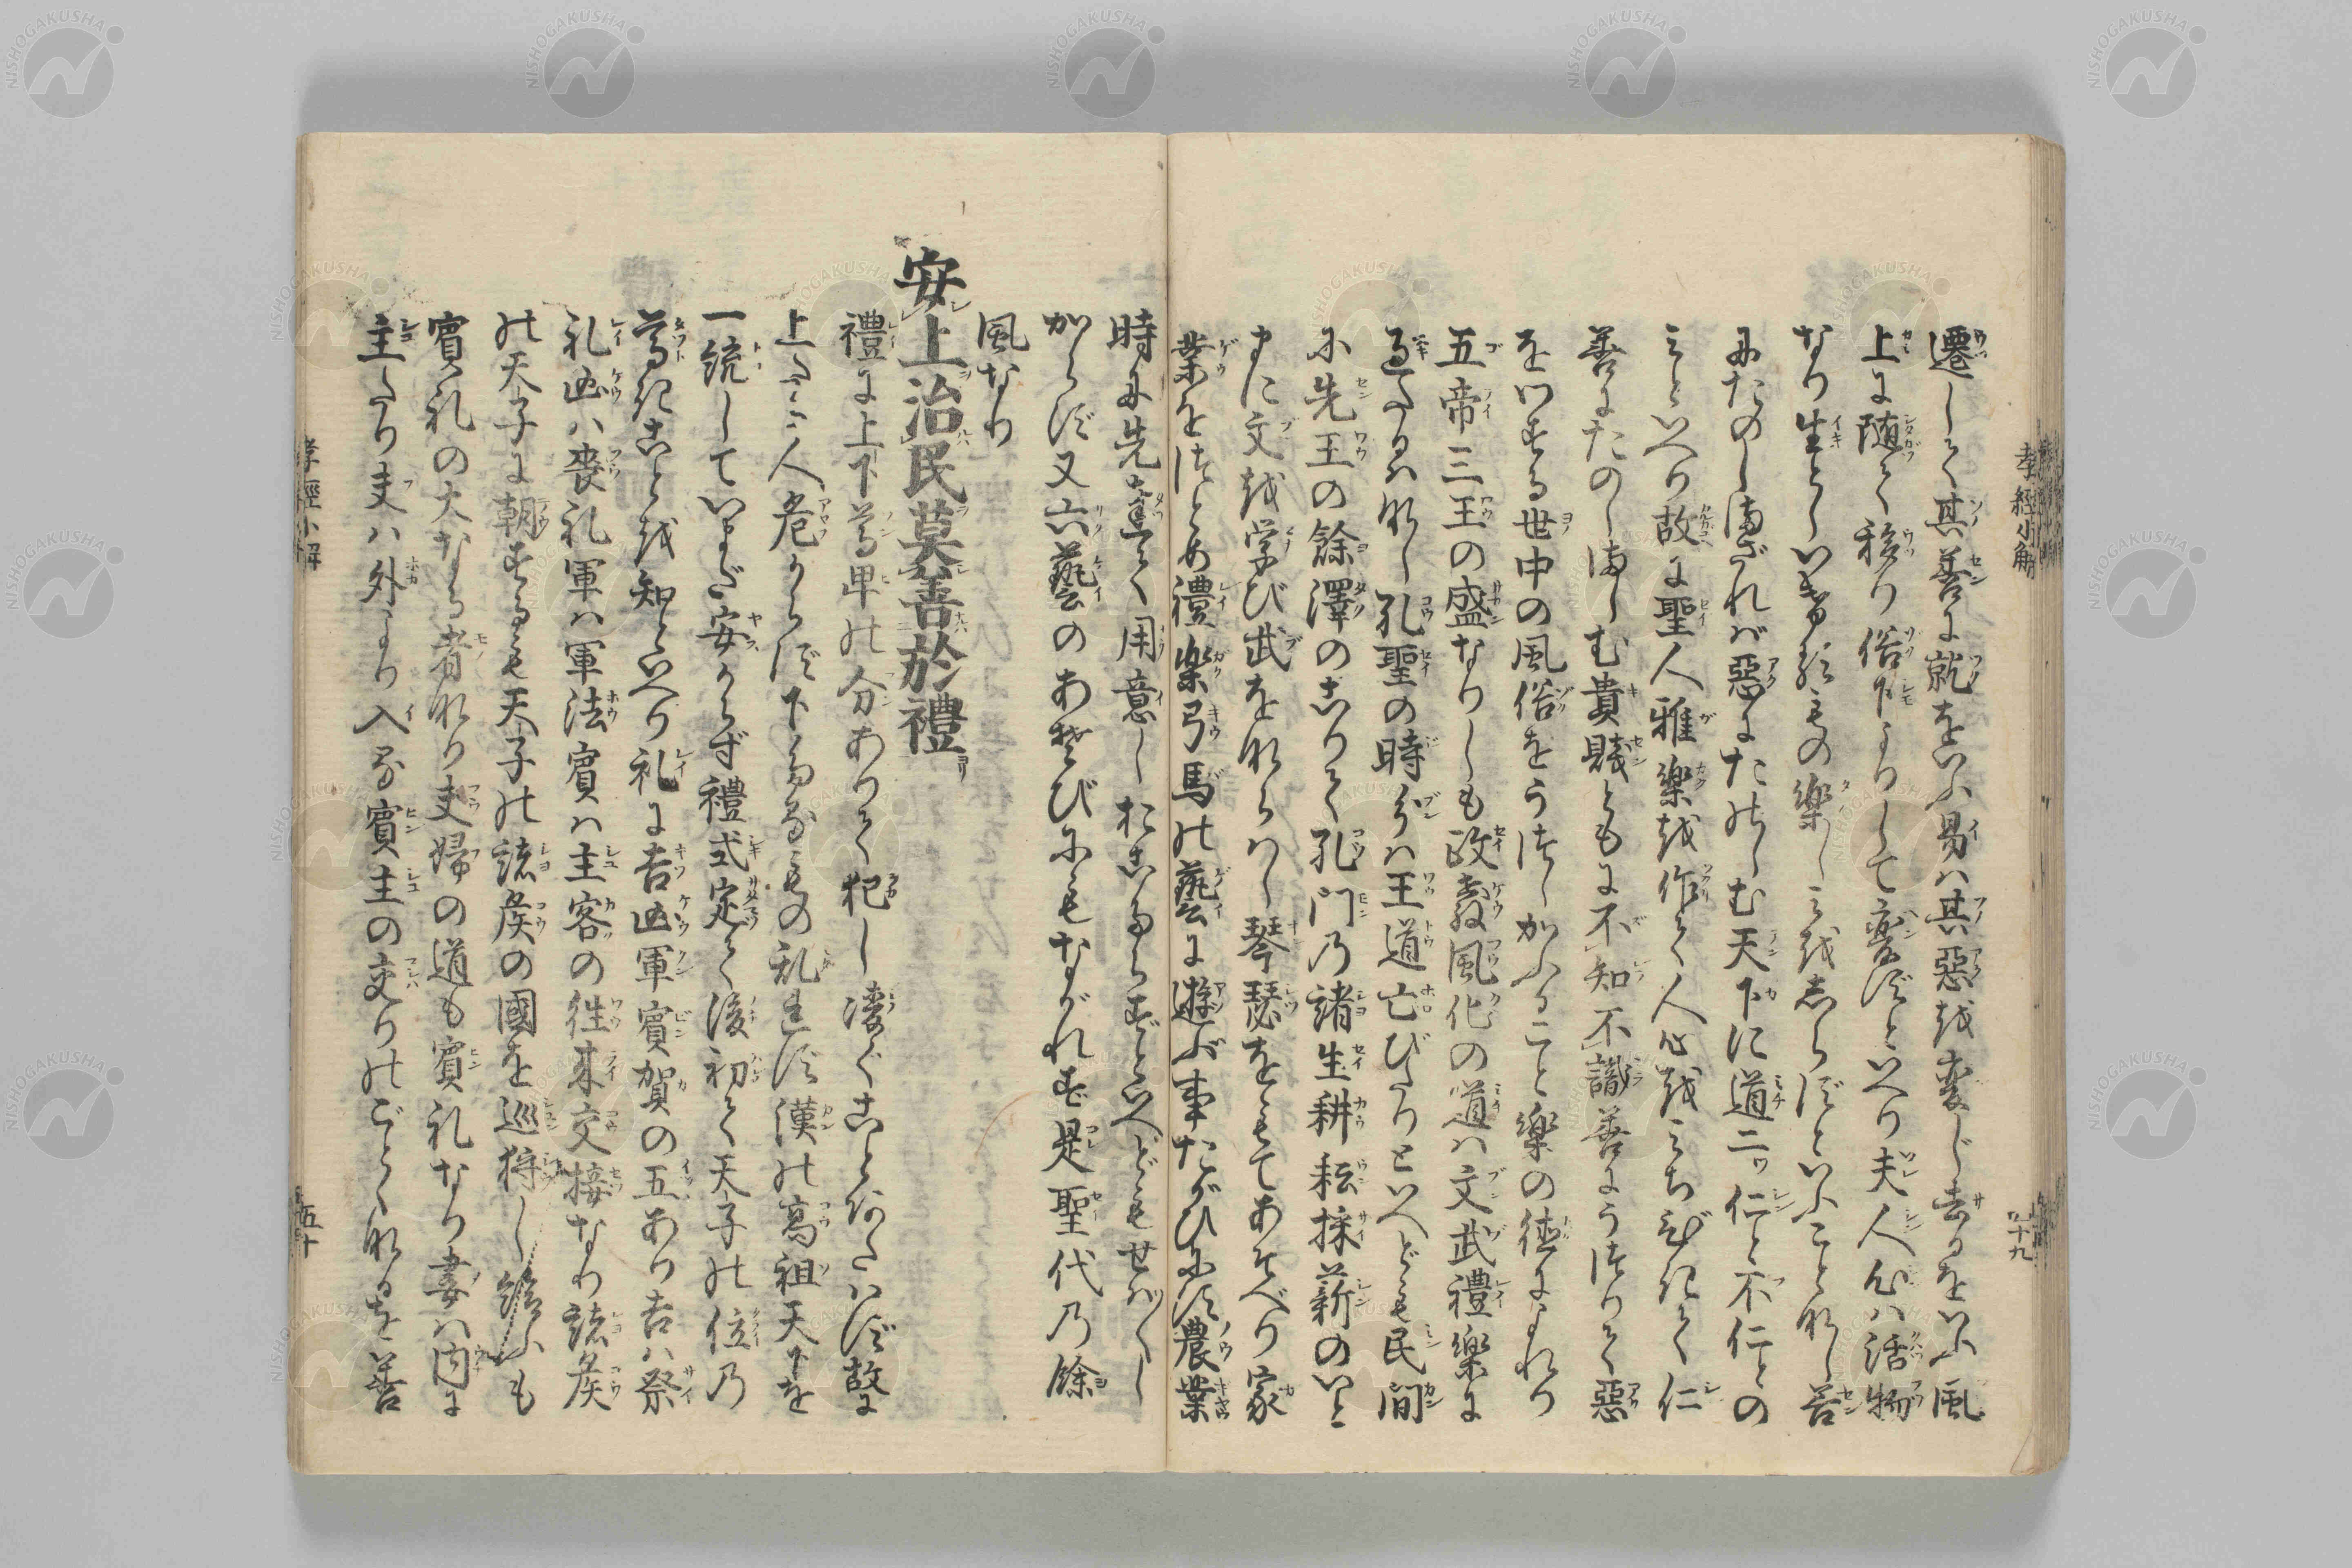 遷して其善に就をいふ易ハ其惡を変じ去るをいふ風
上に随て移り俗下よりして變ずといへり夫人心ハ活物
なり生としいけるもの楽しみをしらずといふことなし善
にたのしまざれバ惡にたのしむ天下に道二ツ仁と不仁との
みといへり故に聖人雅樂を作て人心をみちびきて仁
善にたのしましむ貴賤ともに不知不識善にうつりて惡
をいとする世中の風俗をうつしかふること樂の徳によれり
五帝三王の盛なりしも政教風化の道ハ文武禮樂に
過たるハなし孔聖の時分ハ王道亡びたりといへども民間
に先王の餘澤のこりて孔門の諸生耕耘採薪のいと
まに文を学び武をならハし琴瑟をもてあそべり家
業をつとめ禮樂弓馬の藝に遊ぶ事たがひにす農業
時に先達て用意しおこたらずといへどもせハしく
からず又六藝のあそびにもながれず是聖代の餘
風なり
安上治民莫善於禮
禮に上下尊卑の分ありて犯し凌ぐことあたハず故に
上たる人危からず下たるもの乱れず漢の高祖天下を
一統していまだ安からず禮式定て後初て天子の位の
尊きことを知といへり礼に吉凶軍賓賀の五あり吉ハ祭
礼凶ハ喪礼軍ハ軍法賓ハ主客の往来交接なり諸侯
の天子に朝するも天子の諸侯の國を巡狩し給ふも
賓礼の大なる者なり夫婦の道も賓礼なり妻ハ内に
主たり夫ハ外より入る賓主の交りのごとくなるを善
孝經小解
四十九
孝經小解
五十